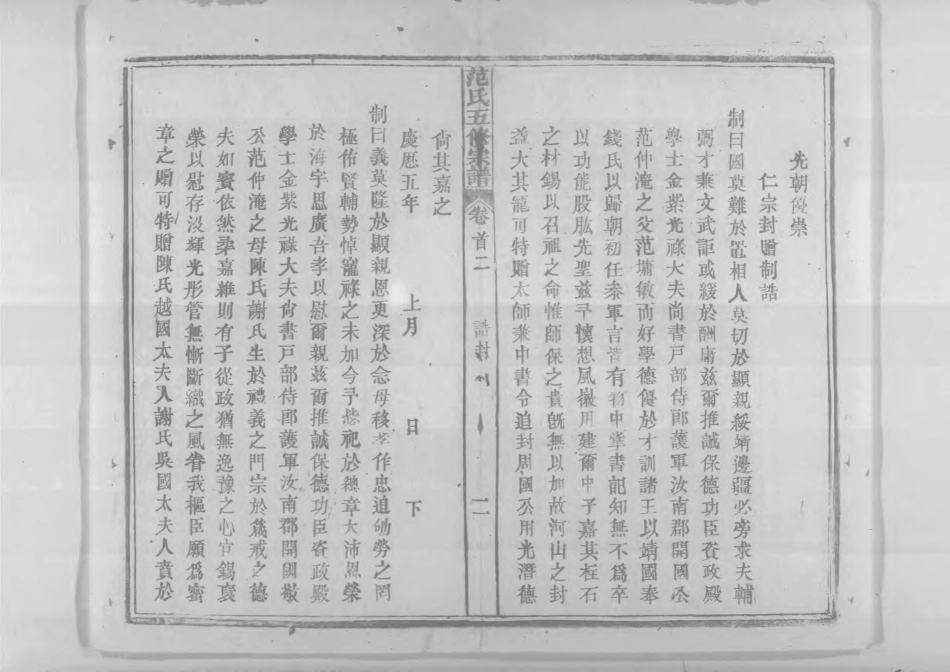 先朝優崇
仁宗封贈制誥
制曰國莫難於置相人莫切於顯親綏靖邊疆必旁求夫輔
弼才兼文武詎或緩於酬庸兹爾推誠保德功臣資政殿
學士金紫光祿大夫尚書戸部侍郎護軍汝南郡開國公
范仲淹之父范墉敏而好學德優於才訓諸王以靖國奉
錢氏以歸朝初任叅軍言皆有物中掌書記知無不爲卒
以功能股肱先聖兹予懷想風徽用建爾中子嘉其柱石
之材錫以召祖之命惟師保之貴旣無以加故河山之封
益大其寵可特贈太師兼中書令追封周國公用光潛德
范氏五修宗譜
卷首二
誥封
二
尚其嘉之
慶厯五年 上月 日 下
制曰義莫隆於顯親恩更深於念母移孝作忠追劬勞之罔
極佑賢輔勢悼寵祿之未加今予
祀於總章大沛恩榮
於海宇思廣吾孝以慰爾親兹爾推誠保德功臣資政殿
學士金紫光祿大夫尚書戸部侍郎護軍汝南郡開國
公范仲淹之母陳氏謝氏生於禮義之門宗於爲戒之德
夫如賓依然舉嘉雜則有子從政猶無逸豫之心宜錫褒
榮以慰存没輝光彤管無慚斷織之風眷我樞臣願爲蜜
章之贈可特贈陳氏越國太夫人謝氏吳國太夫人賁於